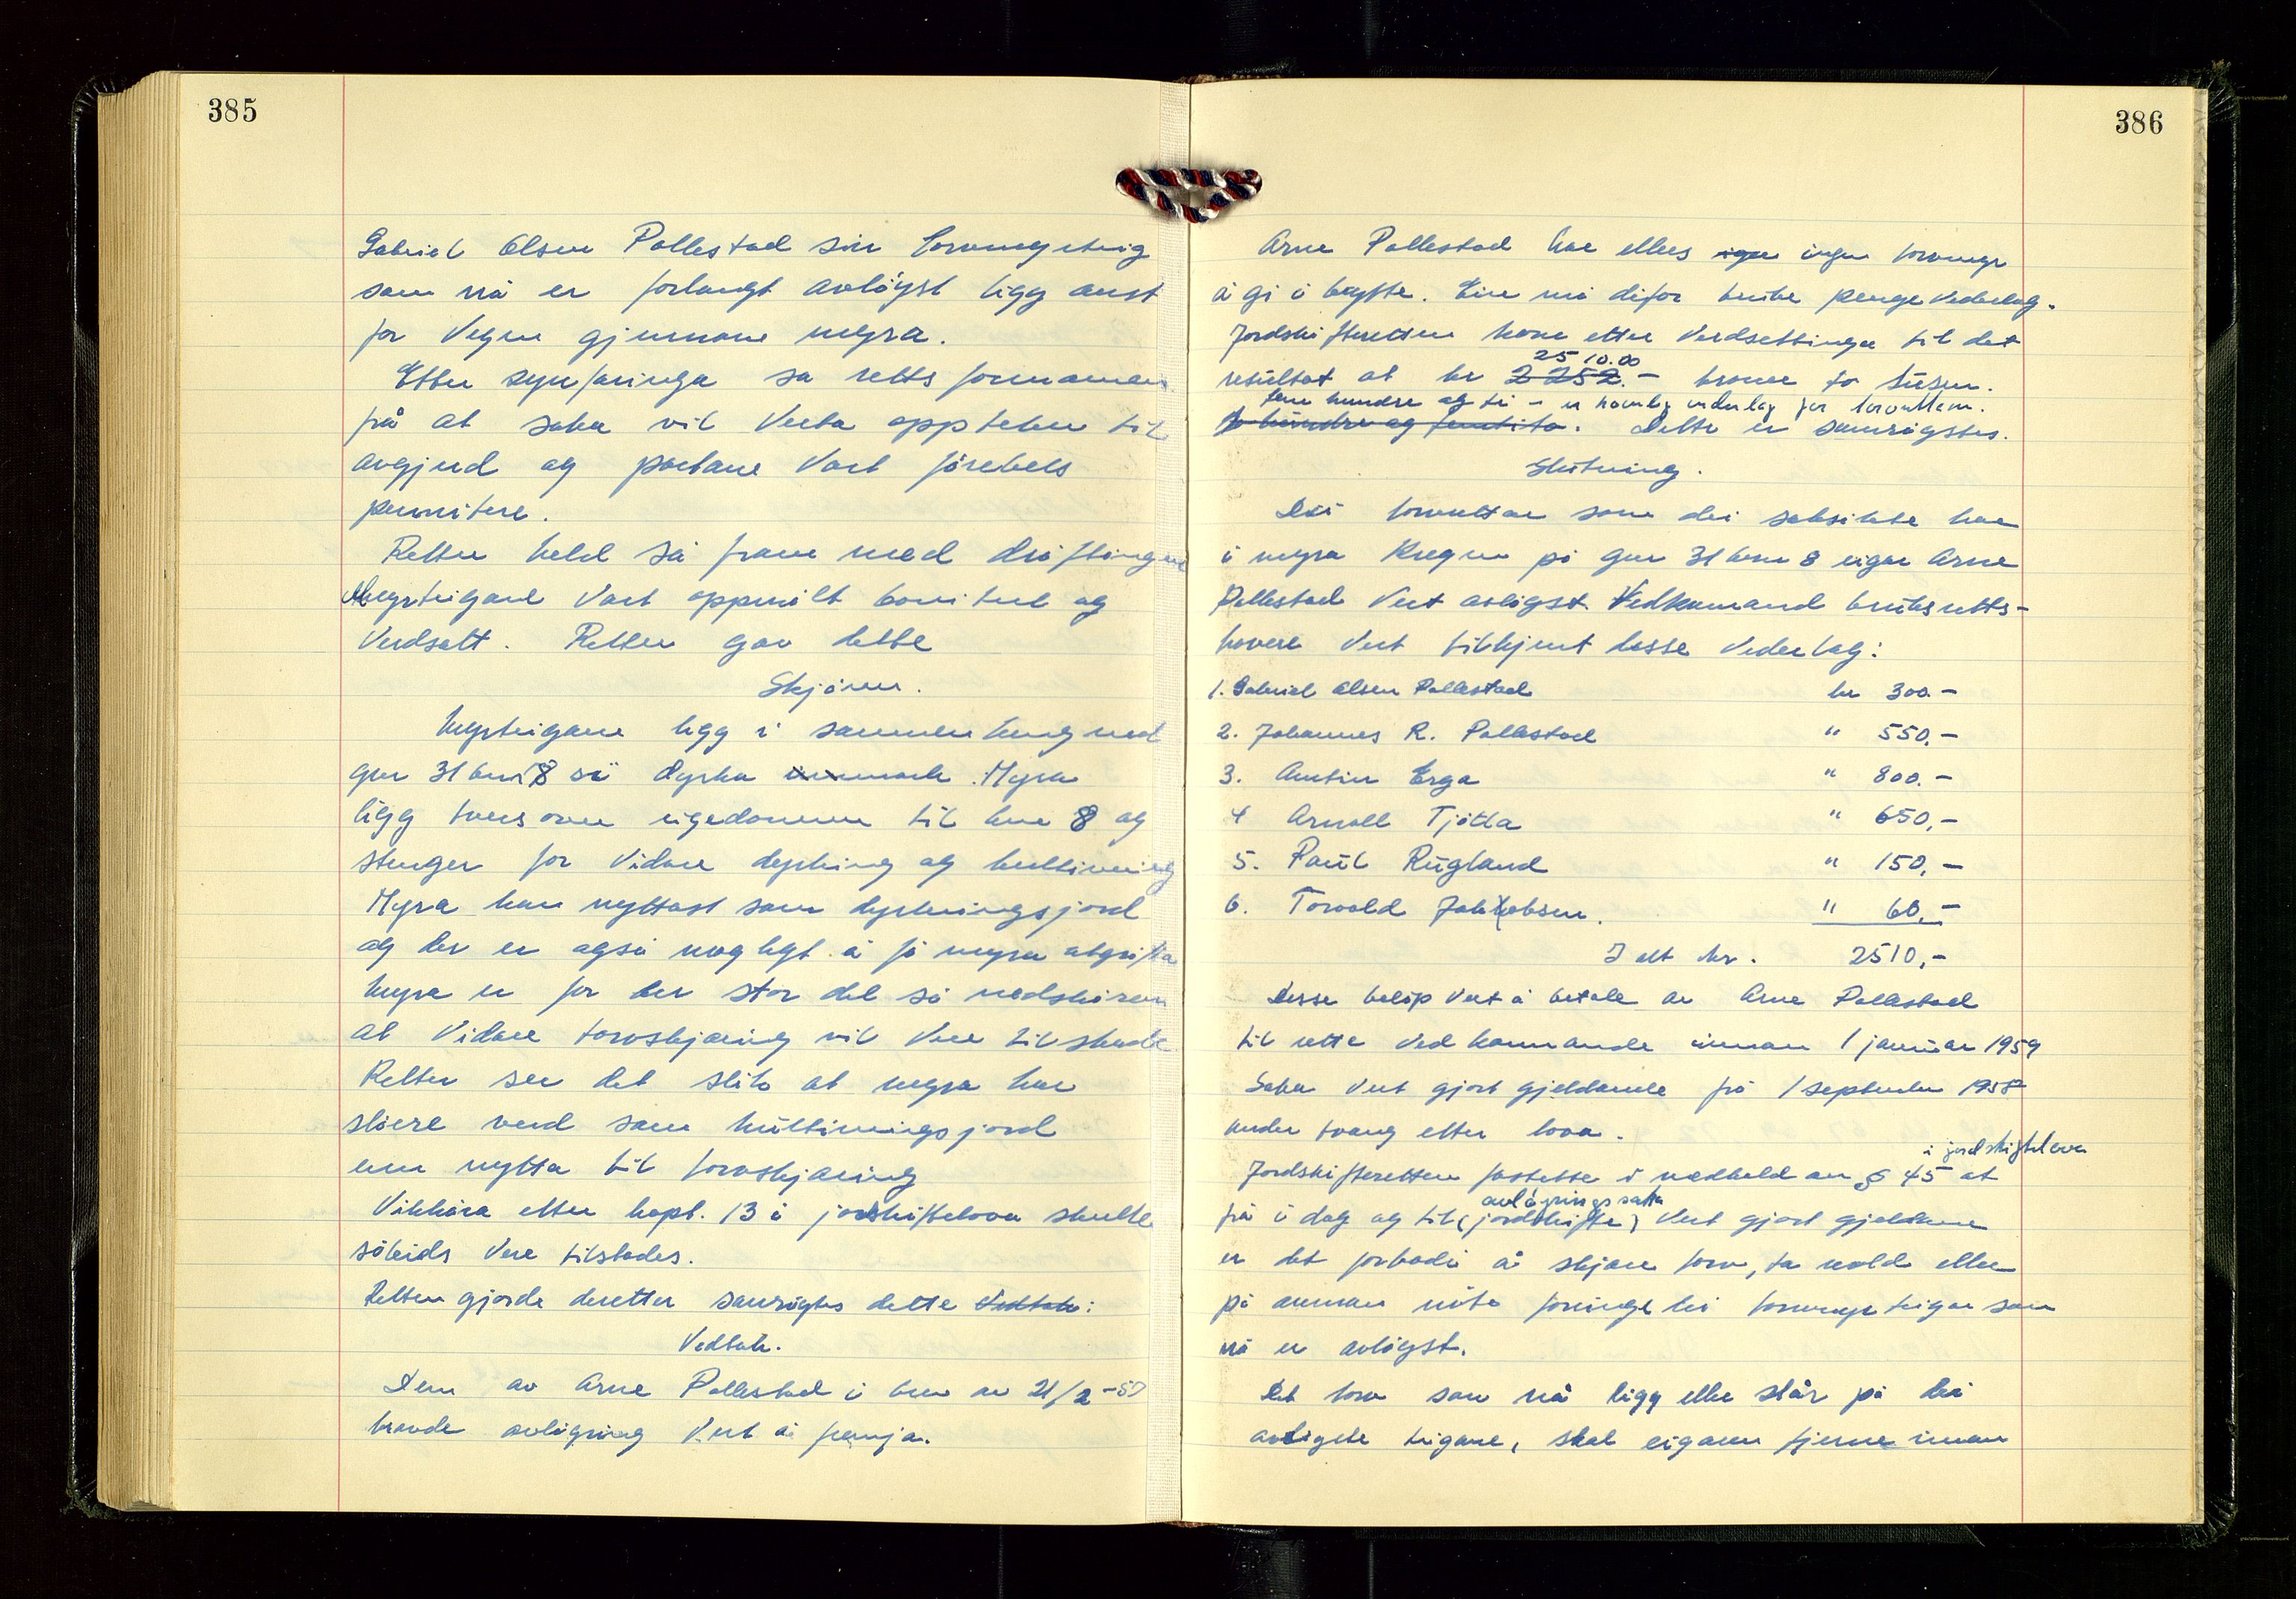 385
Gabriel Olsen Pollestad sin torvmyrteig
som nå er forlangt avløyst ligg aust
for vegen gjennom myra.
Etter synfaringa sa rettsformannen
frå at saka vil verta oppteken til
avgjerd og partane vart førebels
permitere.
Retten held så fram med drøftingane
Myrteigane vart oppmålt bonitert og
verdsatt. Retten gav dette
Skjønn.
Myrteigane ligg i sammenheng med
gnr 31 bnr 8 si dyrka innmark. Myra
ligg tvers over eigedommen til bnr 8 og
stenger for vidare dyrking og kultivering
Myra kan nyttast som dyrkningsjord
og det er også mogligt å få myra avgrøfta
Myra er for den stor del så nedskåren
at vidare torvskjæring vil vere til skade
Retten ser det slik at myra har
større verd som kultiveringsjord
enn nytta til torvskjæring
Vilkåra etter kapt. 13 i jordskiftelova skulle
såleids vere tilstades.
Retten gjorde deretter samrøystes dette vedtak:
Vedtak.
Den av Arne Pollestad i brev av 21/2-57
kravde avløysing vert å fremja.
386
Arne Pollestad har elles ingen torvmyr
å gi i bytte. Ein må difor bruke pengevederlag.
Jordskifteretten kom etter verdsettinga til det
2510.00
resultat at kr 2252.- kroner to tusen.
fem hundre og ti - er høveleg vederlag for torvuttaen.
to hundre og femtito. Dette er samrøystes.
Slutning.
Dei torvuttar som dei saksøkte har
i myra Kregen på gnr 31 bnr 8 eigar Arne
Pollestad vert avløyst. Vedkomand bruksretts-
havere vert tilkjent desse vederlag:
1. Gabriel Olsen Pollestad kr 300.-
2. Johannes R. Pollestad " 550.-
3. Austin Erga " 800.-
4 Arnold Tjøtta " 650,-
5. Paul Rugland " 150,-
6. Torvald Jakobsen. " 60,-
I alt kr. 2510,-
Desse beløp vert å betale av Arne Pollestad
til rette vedkommande innan 1 januar 1959
Saka vert gjort gjeldande frå 1 september 1958
under tvang etter lova.
i jordskiftelova
Jordskifteretten fastsette i medhald av § 45 at
avløysingssaka
frå i dag og til (jordskifte) vert gjort gjeldane
er det forbode å skjære torv, ta mold eller
på annan måte foringe dei torvmyrteigar som
nå er avløyst.
Det torv som nå ligg eller står på dei
avløyste teigane, skal eigaren fjerne innan